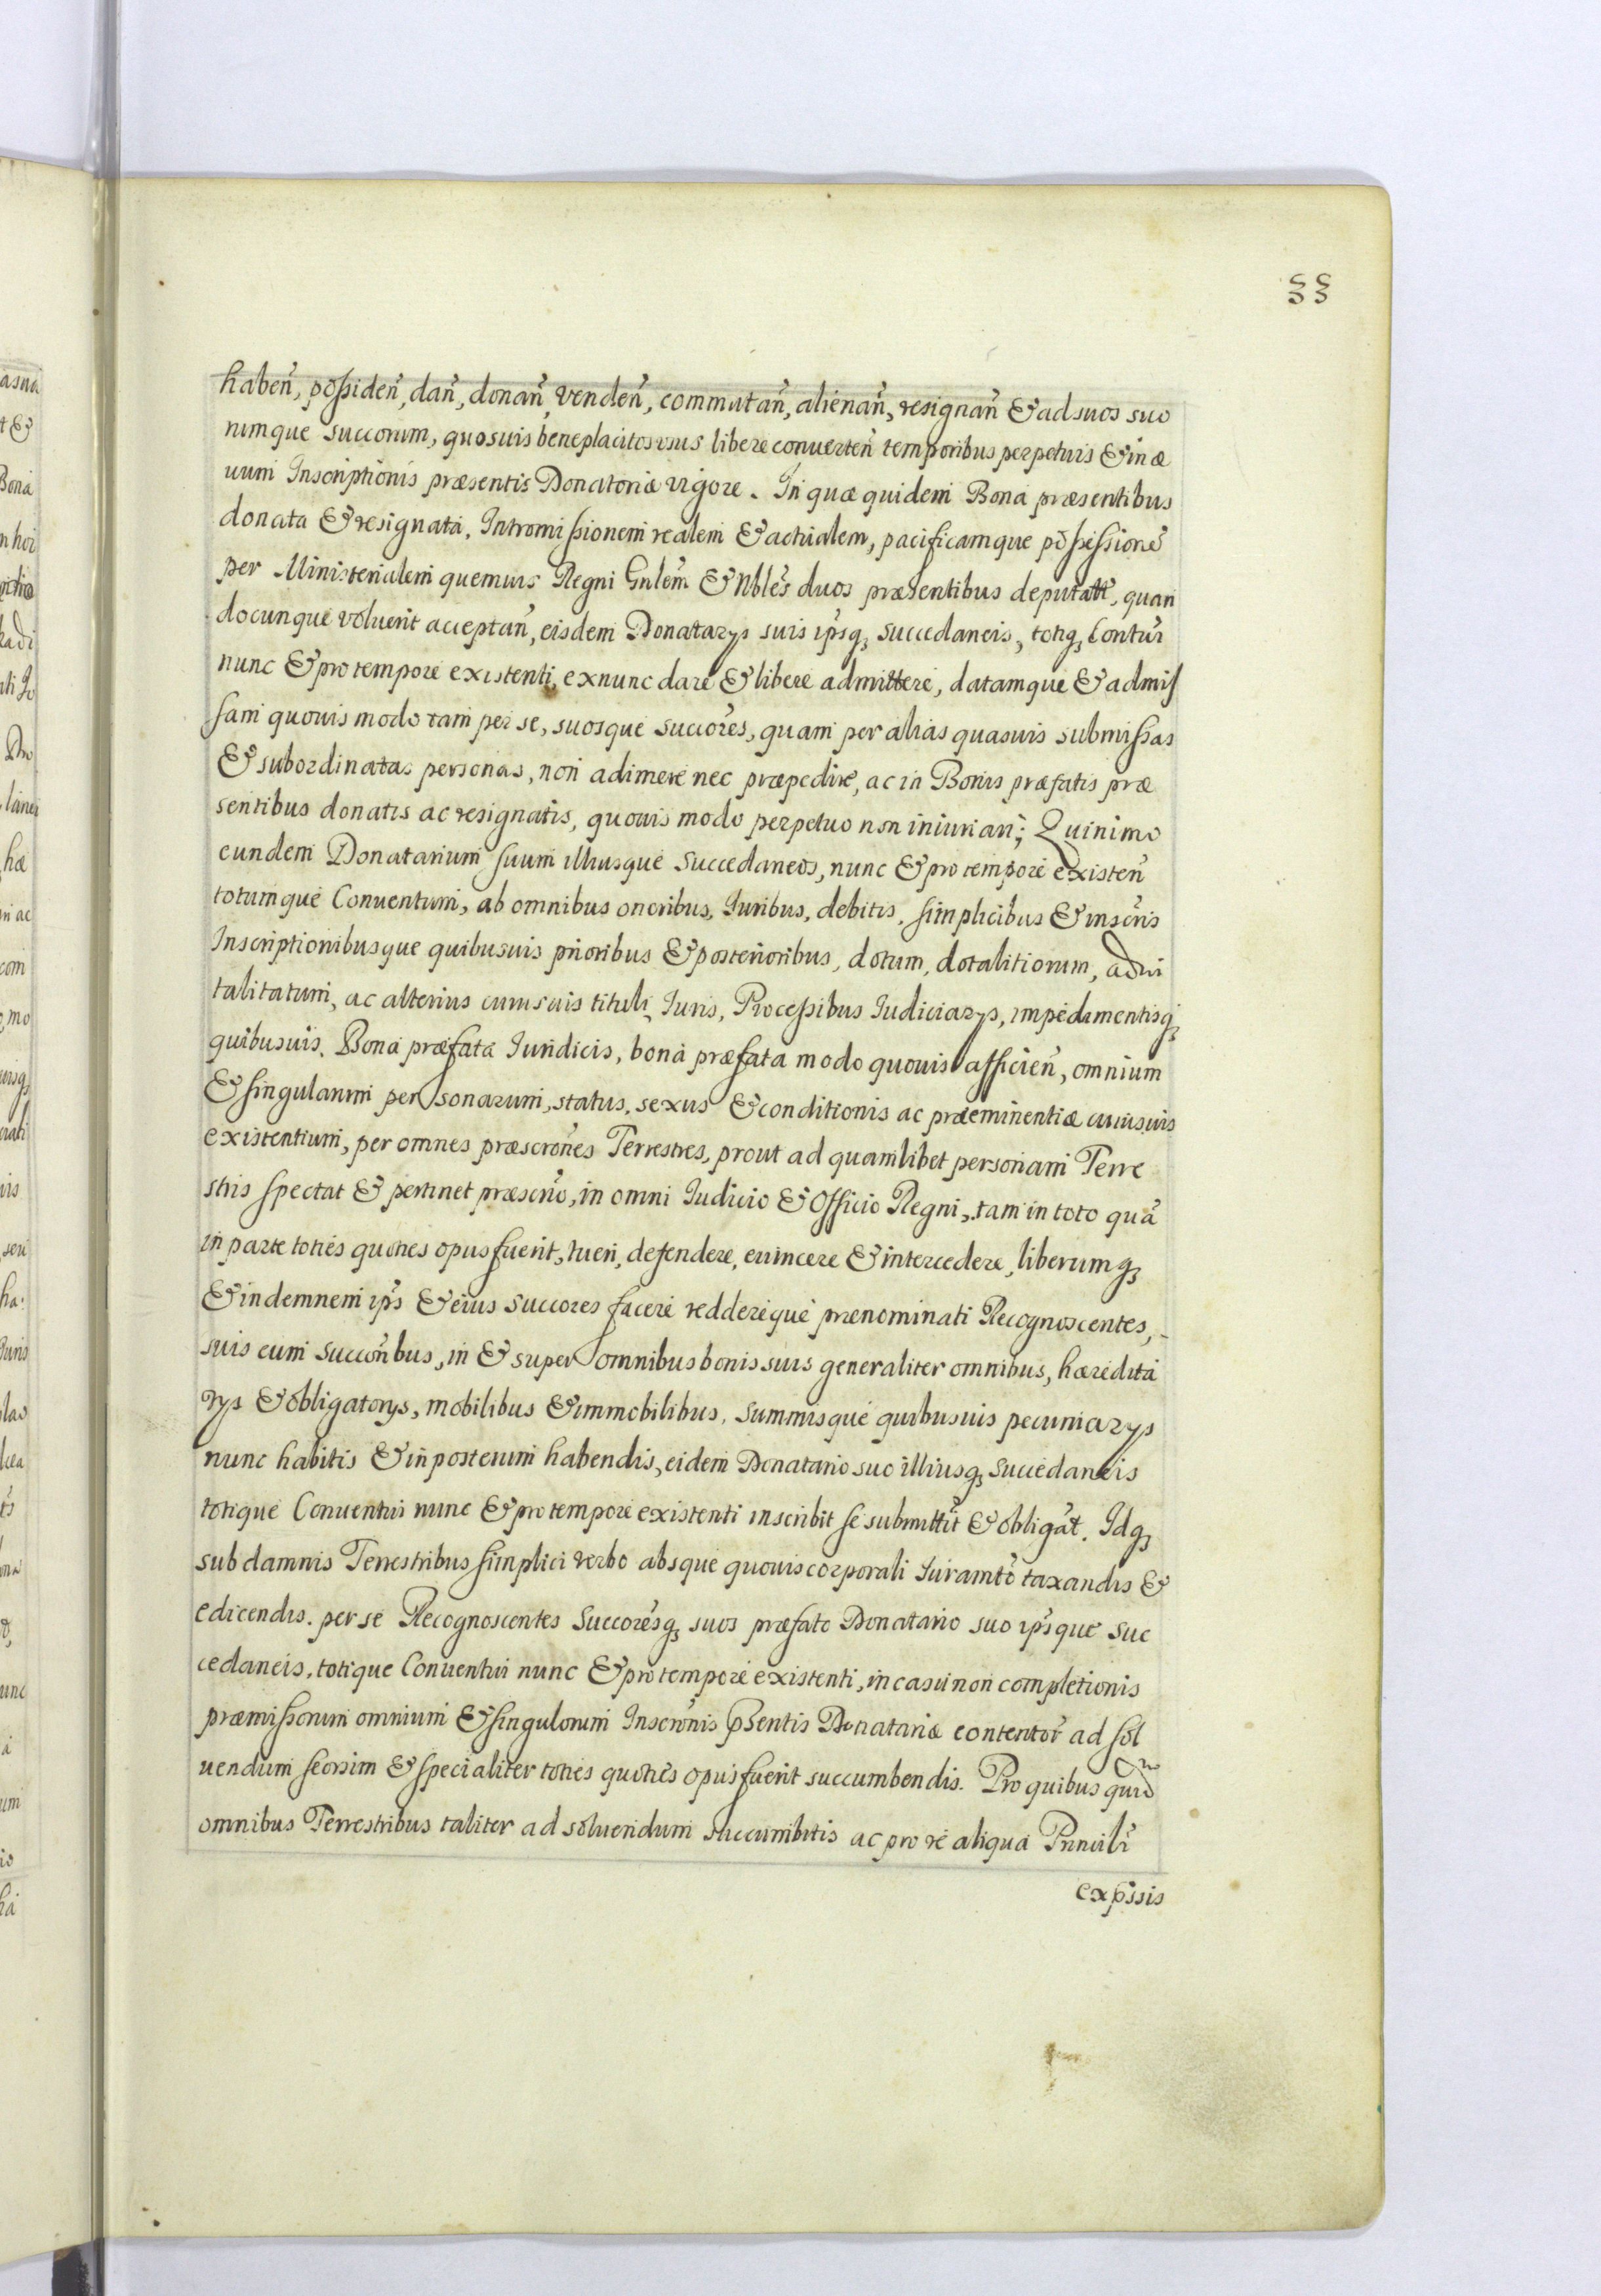 55
habeñ, possideñ, dañ, donañ, vendeñ, commutañ, alienañ, resignañ & ad suos suo
rumque succorum, quosuis beneplacitos usus libere conuerteñ temporibus perpetuis & in æ
uum Inscriptionis præsentis Donatoriæ vigore. In quæ quidem Bona præsentibus
donata & resignata, Intromissionem realem & actualem, pacificamque possessionē
per Ministerialem quemuis Regni Gnlem̃ & Nbles̃ duos præsentibus deputatt, quan
docunque voluerit acceptañ, eisdem Donatarys suis ips̃q₃ succedaneis, totiq₃ Contui
nunc & pro tempore existenti, exnunc dare & libere admittere, datamque & admis
sam quouis modo tam per se, suosque succores̃, quam per alias quasuis submissas
& subordinatas personas, non adimere nec præpedire, ac in Bonis præfatis præ
sentibus donatis ac resignatis, quouis modo perpetuo non iniuriari; Quinimo
eundem Donatarium suum illiusque succedaneos, nunc & pro tempore existeñ
totumque Conuentum, ab omnibus oneribus, Iuribus, debitis, simplicibus & inscr̃is
Inscriptionibusque quibusuis prioribus & posterioribus, dotum, dotalitiorum, adui
talitatum, ac alterius cuiusuis tituli, Iuris, Processibus Iudiciarys, impedimentisq₃
quibusuis. Bona præfata Iuridicis, bona præfata modo quouis afficieñ, omnium
& singularum personarum, status, sexus & conditionis ac præeminentiæ cuiusuis
existentium, per omnes præscrões Terrestres, prout ad quamlibet personam Terre
stris spectat & pertinet præscrõ, in omni Iudicio & Officio Regni, tam in toto quā
in parte toties quoties opus fuerit, tueri, defendere, euincere & intercedere, liberumq₃
& indemnem ips̃ & eius succores facere reddereque prænominati Recognoscentes,
suis cum succorĩbus, in & super omnibus bonis suis generaliter omnibus, hæredita
rys & obligatorys, mobilibus & immobilibus, summisque quibusuis pecuniarys
nunc habitis & in posterum habendis, eidem Donatario suo illiusq₃ succedaneis
totique Conuentui nunc & pro tempore existenti inscribit se submittit̃ & obligat̃. Idq₃
sub damnis Terrestribus simplici verbo absque quouis corporali Iuramtõ taxandis &
edicendis. per se Recognoscentes Succores̃q₃ suos præfato Donatario suo ips̃que suc
cedaneis, totique Conuentui nunc & pro tempore existenti, in casu non completionis
præmissorum omnium & singulorum Inscrõnis p̃sentis Donatariæ contentor̃ ad sol
uendum seorsim & specialiter toties quoties opus fuerit succumbendis. Pro quibus
omnibus Terrestribus taliter ad soluendum succumbitis ac pro re aliqua Principli
exp̃ssis